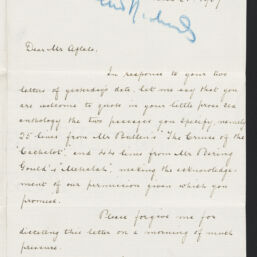 Dear Mr Aflalo.
In response to your two
letters of yesterday's date, let me say that you
are welcome to quote in your little prose sea
anthology the two passages you specify, namely
25 lines from Mr Bullen's "The Cruise of the
"Cachalot", and 44 lines from Mr Baring
Gould's "Mehalah", making the acknowledge-
ment of our permission given which you
promise.
Please forgive me for
dictating this letter on a morning of much
pressure.